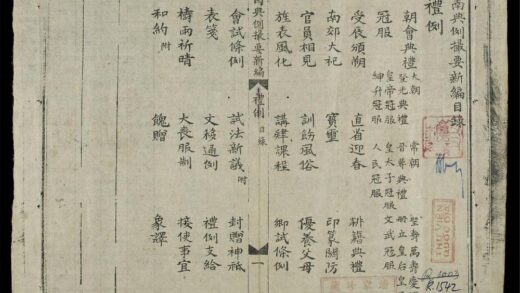 南典例撮要新編目錄
禮例
朝會典禮 大朝 登光典禮 常朝 晉尊典禮 聖壽萬壽慶 冊立皇后皇
冠服 皇帝冠服 紳弁冠服 皇太子冠服 人民冠服 文武冠服
受辰頒朔 直省迎春 耕籍典禮
南郊大祀 寶璽 印篆關防
官員相見 訓飭風俗 優養父母
旌表風化 講肄課程 鄉試條例
典例撮要新編 禮例 目錄 一
會試條例 試法新議 附 封贈神祇
表箋 文移通例 禮例支給
禱雨祈晴 大喪服制 接使事宜
和約 附 餽贈 象譯
R.1542